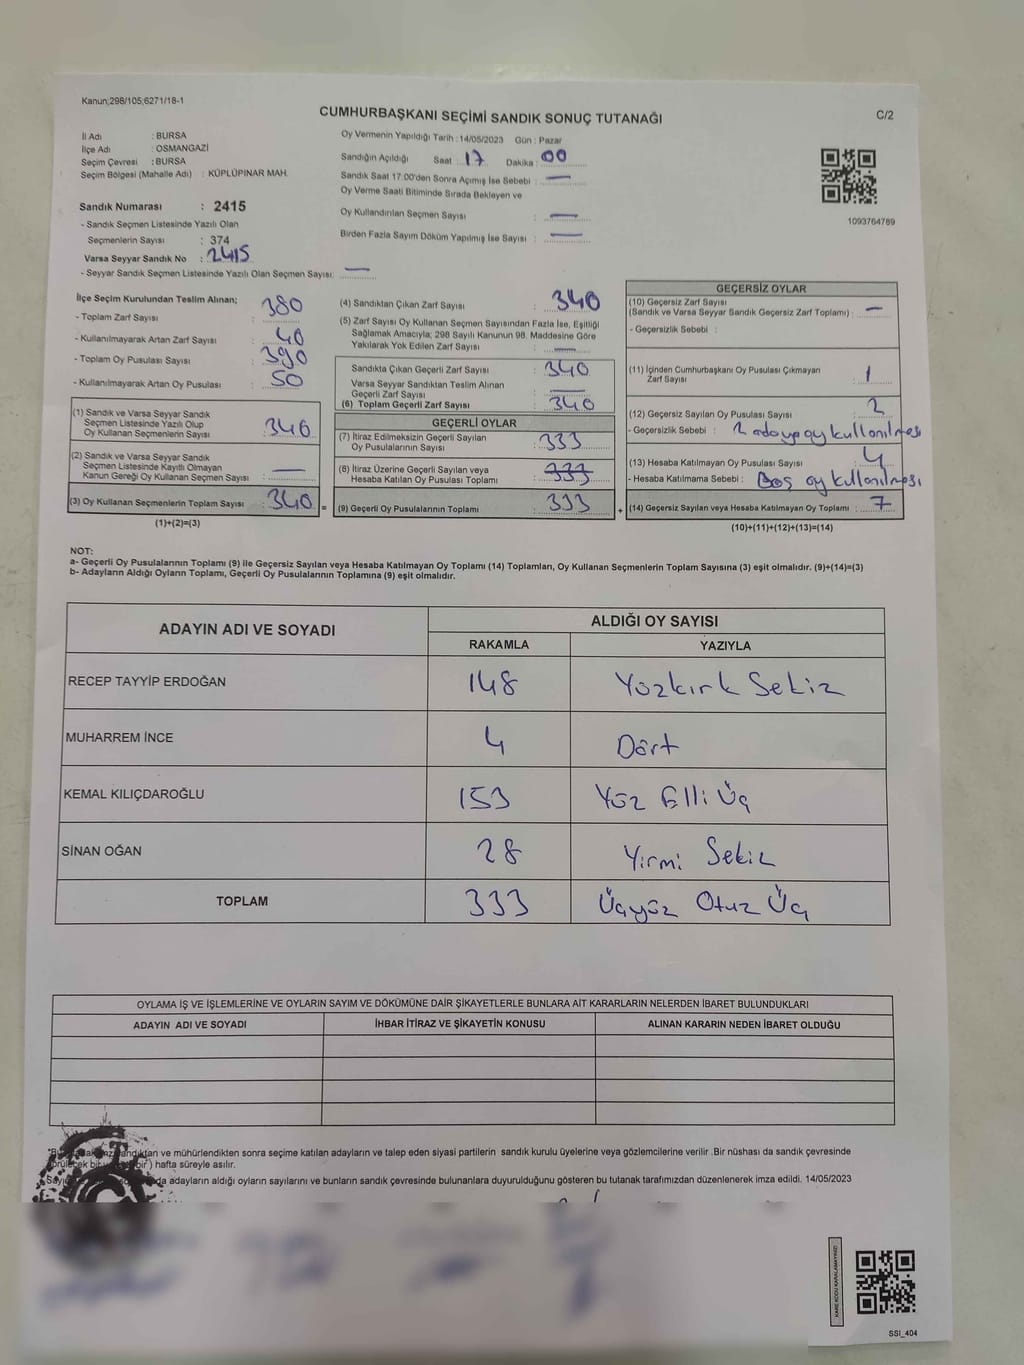 Kanun;298/105;6271/18-1
CUMHURBAŞKANI SEÇİMİ SANDIK SONUÇ TUTANAĞI
C/2
İl Adı : BURSA
İlçe Adı : OSMANGAZİ
Seçim Çevresi : BURSA
Seçim Bölgesi (Mahalle Adı) : KÜPLÜPINAR MAH.
Sandık Numarası : 2415
- Sandık Seçmen Listesinde Yazılı Olan
Seçmenlerin Sayısı : 374
Varsa Seyyar Sandık No : 2415
- Seyyar Sandık Seçmen Listesinde Yazılı Olan Seçmen Sayısı: —
Oy Vermenin Yapıldığı Tarih : 14/05/2023 Gün : Pazar
Sandığın Açıldığı Saat : 17 Dakika : 00
Sandık Saat 17:00'den Sonra Açılmış İse Sebebi : —
Oy Verme Saati Bitiminde Sırada Bekleyen ve
Oy Kullandırılan Seçmen Sayısı : —
Birden Fazla Sayım Döküm Yapılmış İse Sayısı : —
1093764789
İlçe Seçim Kurulundan Teslim Alınan;
- Toplam Zarf Sayısı : 380
- Kullanılmayarak Artan Zarf Sayısı : 40
- Toplam Oy Pusulası Sayısı : 390
- Kullanılmayarak Artan Oy Pusulası : 50
(1) Sandık ve Varsa Seyyar Sandık
Seçmen Listesinde Yazılı Olup
Oy Kullanan Seçmenlerin Sayısı : 340
(2) Sandık ve Varsa Seyyar Sandık
Seçmen Listesinde Kayıtlı Olmayan
Kanun Gereği Oy Kullanan Seçmen Sayısı : —
(3) Oy Kullanan Seçmenlerin Toplam Sayısı : 340 =
(1)+(2)=(3)
(4) Sandıktan Çıkan Zarf Sayısı : 340
(5) Zarf Sayısı Oy Kullanan Seçmen Sayısından Fazla İse, Eşitliği
Sağlamak Amacıyla; 298 Sayılı Kanunun 98. Maddesine Göre
Yakılarak Yok Edilen Zarf Sayısı : —
Sandıkta Çıkan Geçerli Zarf Sayısı : 340
Varsa Seyyar Sandıktan Teslim Alınan
Geçerli Zarf Sayısı : —
(6) Toplam Geçerli Zarf Sayısı : 340
GEÇERLİ OYLAR
(7) İtiraz Edilmeksizin Geçerli Sayılan
Oy Pusulalarının Sayısı : 333
(8) İtiraz Üzerine Geçerli Sayılan veya
Hesaba Katılan Oy Pusulası Toplamı : 333
(9) Geçerli Oy Pusulalarının Toplamı : 333 +
GEÇERSİZ OYLAR
(10) Geçersiz Zarf Sayısı
(Sandık ve Varsa Seyyar Sandık Geçersiz Zarf Toplamı) : —
- Geçersizlik Sebebi :
(11) İçinden Cumhurbaşkanı Oy Pusulası Çıkmayan
Zarf Sayısı : 1
(12) Geçersiz Sayılan Oy Pusulası Sayısı : 2
- Geçersizlik Sebebi : 2 adaya oy kullanılması
(13) Hesaba Katılmayan Oy Pusulası Sayısı : 4
- Hesaba Katılmama Sebebi : Boş oy kullanılması
(14) Geçersiz Sayılan veya Hesaba Katılmayan Oy Toplamı : 7
(10)+(11)+(12)+(13)=(14)
NOT:
a- Geçerli Oy Pusulalarının Toplamı (9) ile Geçersiz Sayılan veya Hesaba Katılmayan Oy Toplamı (14) Toplamları, Oy Kullanan Seçmenlerin Toplam Sayısına (3) eşit olmalıdır. (9)+(14)=(3)
b- Adayların Aldığı Oyların Toplamı, Geçerli Oy Pusulalarının Toplamına (9) eşit olmalıdır.
ADAYIN ADI VE SOYADI ALDIĞI OY SAYISI
RAKAMLA YAZIYLA
RECEP TAYYİP ERDOĞAN 148 Yüzkırk Sekiz
MUHARREM İNCE 4 Dört
KEMAL KILIÇDAROĞLU 153 Yüz Elli Üç
SİNAN OĞAN 28 Yirmi Sekiz
TOPLAM 333 Üçyüz Otuz Üç
OYLAMA İŞ VE İŞLEMLERİNE VE OYLARIN SAYIM VE DÖKÜMÜNE DAİR ŞİKAYETLERLE BUNLARA AİT KARARLARIN NELERDEN İBARET BULUNDUKLARI
ADAYIN ADI VE SOYADI İHBAR İTİRAZ VE ŞİKAYETİN KONUSU ALINAN KARARIN NEDEN İBARET OLDUĞU
ve mühürlendikten sonra seçime katılan adayların ve talep eden siyasi partilerin sandık kurulu üyelerine veya gözlemcilerine verilir .Bir nüshası da sandık çevresinde
hafta süreyle asılır.
adayların aldığı oyların sayılarını ve bunların sandık çevresinde bulunanlara duyurulduğunu gösteren bu tutanak tarafımızdan düzenlenerek imza edildi. 14/05/2023
KARE KODU KARALAMAYINIZ!
SSI_404